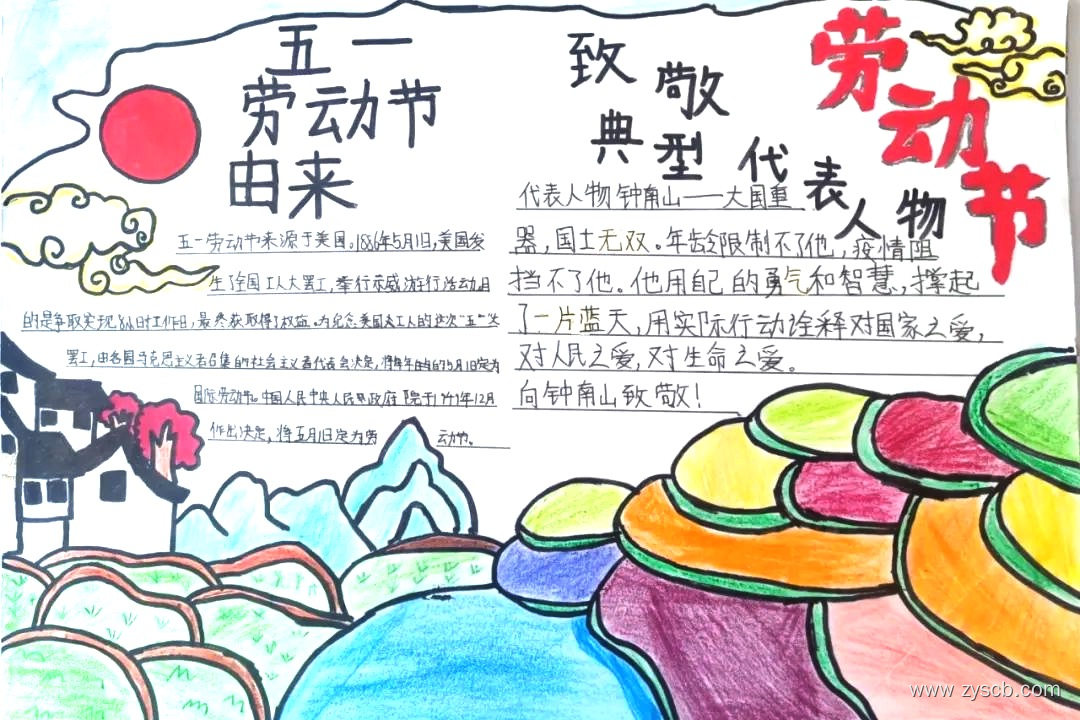 五一
劳动节
由来
五一劳动节来源于美国。1886年5月1日,美国发
生了全国工人大罢工,举行示威游行活动,目
的是争取实现8小时工作日,最终获取得了权益。为纪念美国大工人的这次"五一"大
罢工,由各国马克思主义者召集的社会主义者代表会决定,将每年的5月1日定为
国际劳动节。中国人民中央人民政府 院于1949年12月
作出决定,将五月1日定为劳 动节。
致敬
典型代表人物
劳动节
代表人物钟南山——大国重
器,国士无双。年龄限制不了他,疫情阻
挡不了他。他用自己的勇气和智慧,撑起
了一片蓝天,用实际行动诠释对国家之爱,
对人民之爱,对生命之爱。
向钟南山致敬!
www.zyscb.com